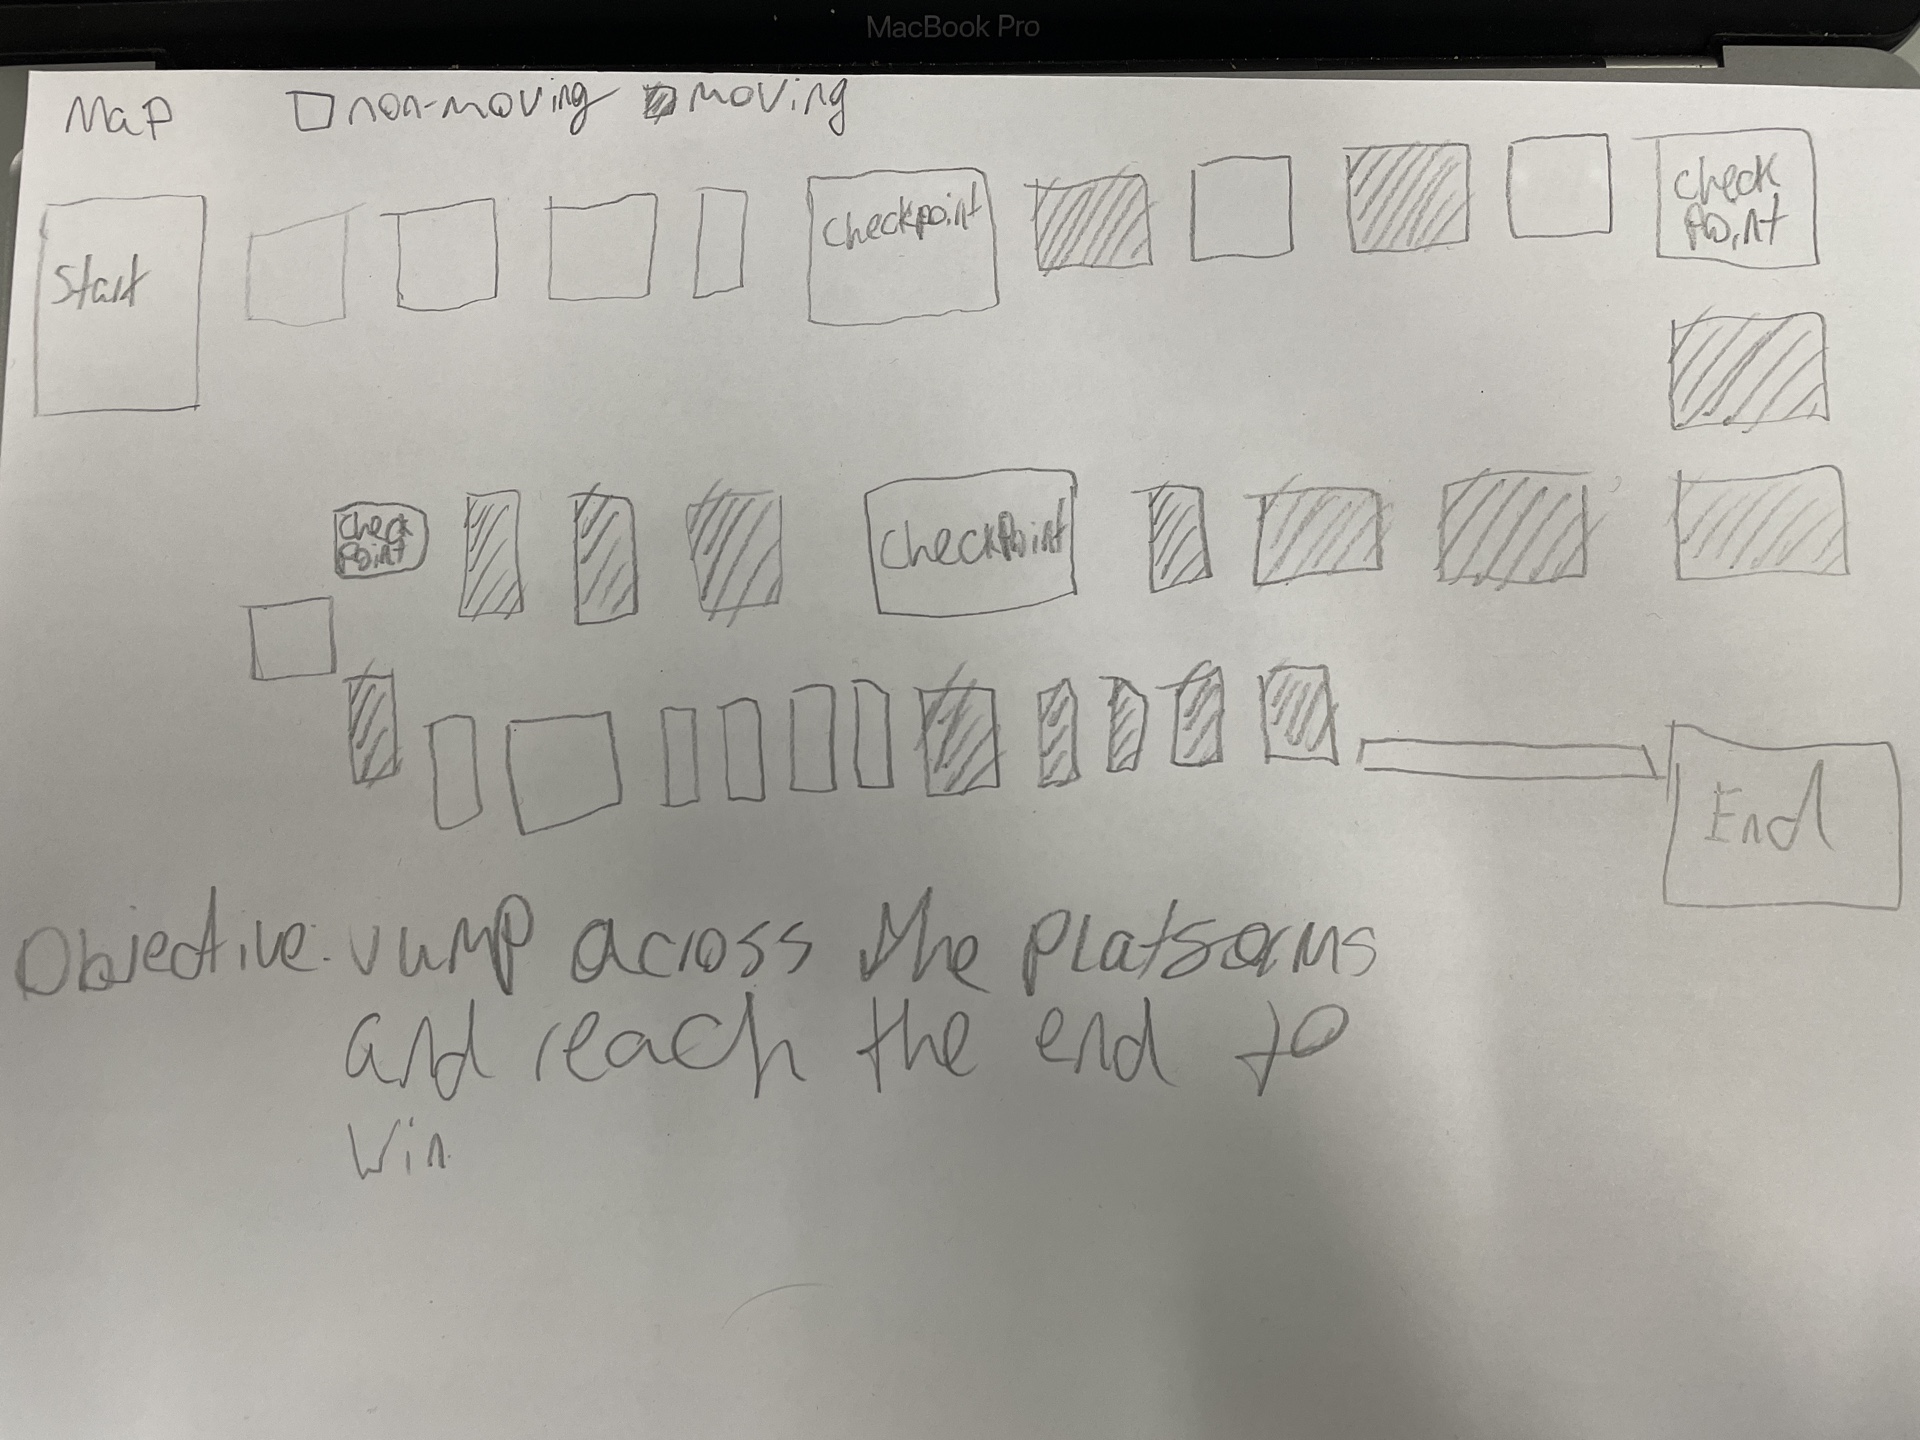 MacBook Pro
Map non-moving moving
Start
Checkpoint
Check
Point
Check
Point
CheckPoint
End
Objective: Jump across the platforms
and reach the end to
Win